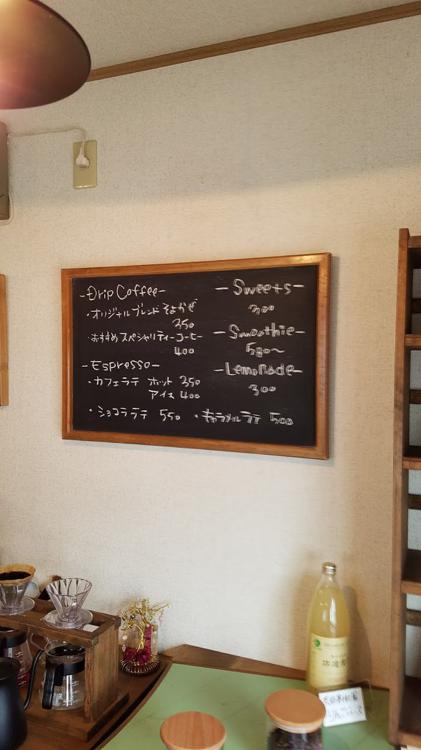 -Drip Coffee-
・オリジナルブレンド そよかぜ
350
・おすすめ スペシャリティーコーヒー
400
-Espresso-
・カフェラテ ホット 350
アイス 400
・ショコララテ 550
・キャラメルラテ 500
-Sweets-
300
-Smoothie-
580〜
-Lemonade-
300